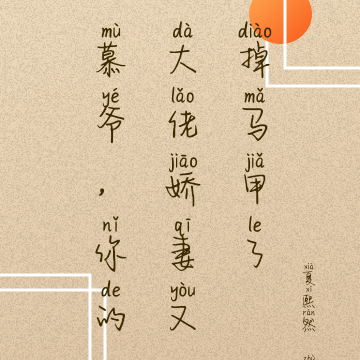 mù 慕 yé 爷 ， nǐ 你 de 的
dà 大 lǎo 佬 jiāo 娇 qī 妻 yòu 又
diào 掉 mǎ 马 jiǎ 甲 le 了
xià 夏 xī 熙 rán 然